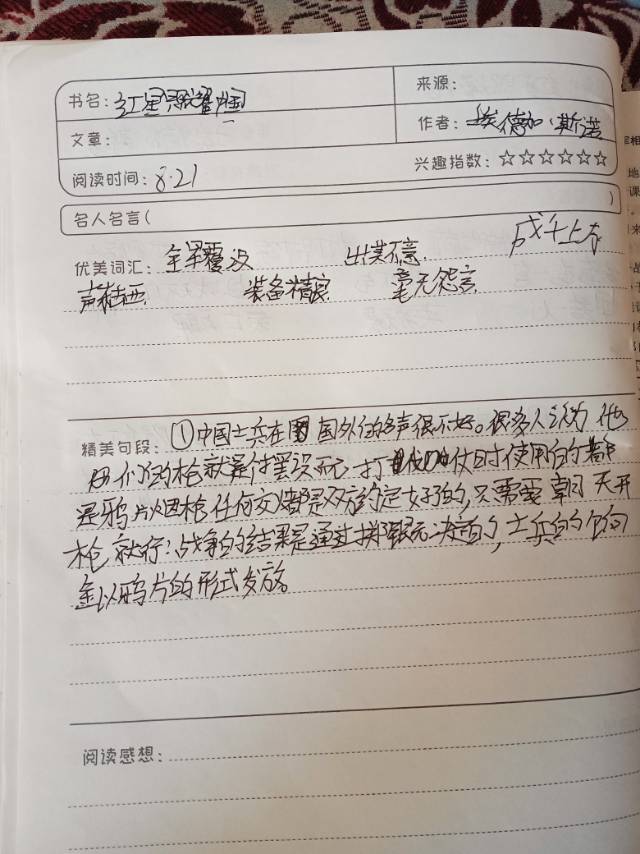 书名：红星照耀中国
来源：
文章：
作者：埃德加·斯诺
阅读时间：8.21
兴趣指数：☆☆☆☆☆☆
名人名言（ ）
优美词汇：全军覆没 出其不意 成千上万
声东击西 装备精良 毫无怨言
精美句段：①中国士兵在国外的名声很不好。很多人认为他
们的枪就是个摆设而已，打仗时使用的都
是鸦片烟枪，任何交火都是双方约定好的，只需要朝天开
枪就行；战争的结果是通过拼银元决定的，士兵的饷
金以鸦片的形式发放。
阅读感想：